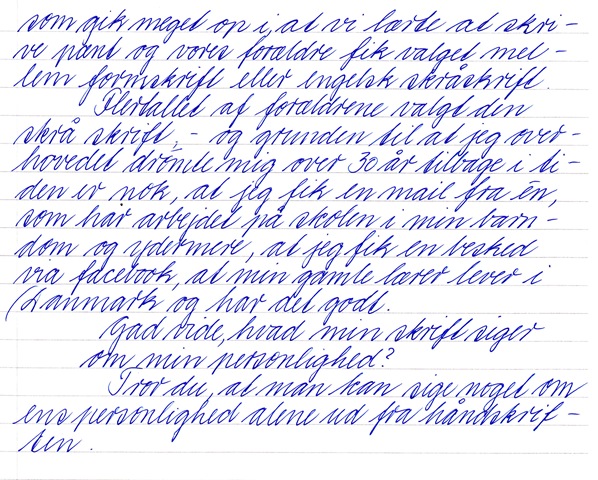 som gik meget op i, at vi lærte at skri-
ve pænt og vores forældre fik valget mel-
lem formskrift eller engelsk skråskrift.
Flertallet af forældrene valgt den
skrå skrift, - og grunden til at jeg over-
hovedet drömte mig over 30 år tilbage i ti-
den er nok, at jeg fik en mail fra én,
som har arbejdet på skolen i min barn-
dom og ydermere, at jeg fik en besked
via facebook, at min gamle lærer lever i
Danmark og har det godt.
Gad vide, hvad min skrift siger
om min personlighed?
Tror du, at man kan sige noget om
ens personlighed alene ud fra håndskrif-
ten.